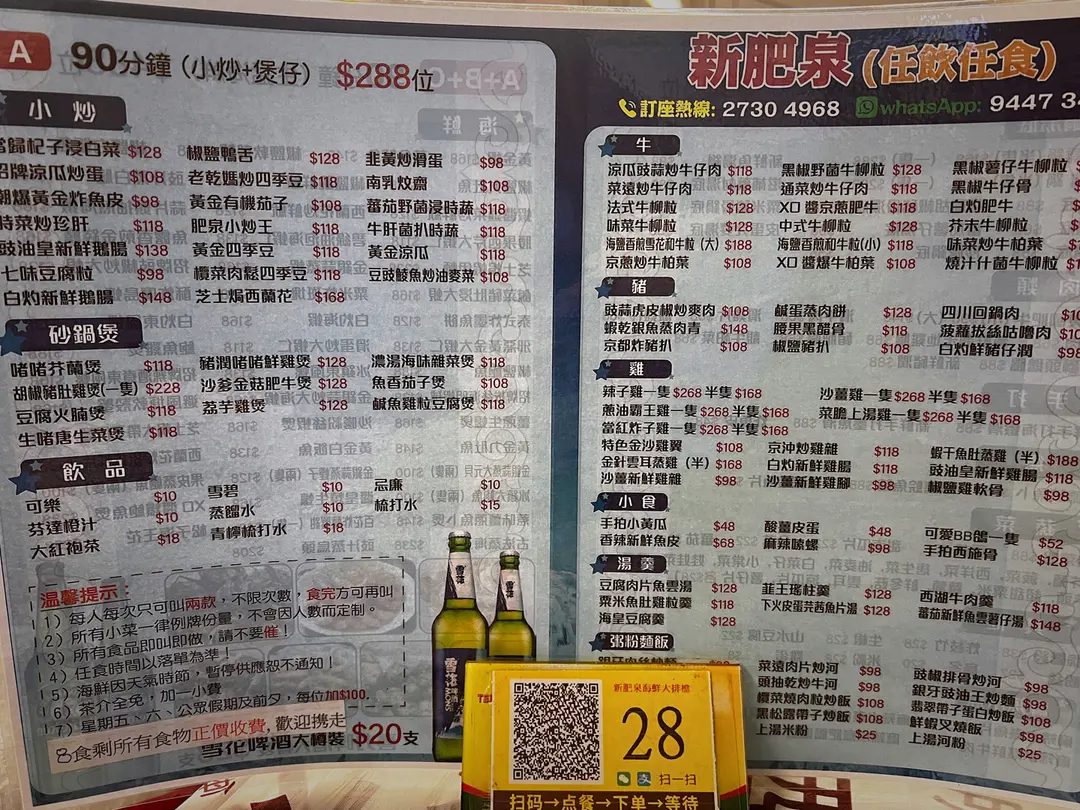 A 90分鐘（小炒+煲仔）$288位
小 炒
當歸杞子浸白菜 $128 椒鹽鴨舌 $128 韭黃炒滑蛋 $98
招牌涼瓜炒蛋 $108 老乾媽炒四季豆 $118 南乳炆齋 $108
潮爆黃金炸魚皮 $98 黃金有機茄子 $108 蕃茄野菌浸時蔬 $118
時菜炒珍肝 $118 肥泉小炒王 $118 牛肝菌扒時蔬 $118
豉油皇新鮮鵝腸 $138 黃金四季豆 $118 黃金涼瓜 $118
七味豆腐粒 $98 欖菜肉鬆四季豆 $118 豆豉鯪魚炒油麥菜 $108
白灼新鮮鵝腸 $148 芝士焗西蘭花 $168
砂鍋煲
啫啫芥蘭煲 $118 豬潤啫啫鮮雞煲 $128 濃湯海味雜菜煲 $118
胡椒豬肚雞煲(一隻) $228 沙爹金菇肥牛煲 $128 魚香茄子煲 $108
豆腐火腩煲 $118 荔芋雞煲 $128 鹹魚雞粒豆腐煲 $118
生啫唐生菜煲 $118
飲 品
可樂 $10 雪碧 $10 忌廉 $10
芬達橙汁 $10 蒸餾水 $10 梳打水 $15
大紅袍茶 $18 青檸梳打水 $18
溫馨提示：
1）每人每次只可叫兩款，不限次數，食完方可再叫
2）所有小菜一律例牌份量，不會因人數而定制。
3）所有食品即叫即做，請不要催！
4）任食時間以落單為準！
5）海鮮因天氣時節，暫停供應恕不通知！
6）茶介全免，加一小費
7）星期五、六、公眾假期及前夕，每位加$100.
8食剩所有食物正價收費，歡迎携走
雪花啤酒大樽裝 $20支
新肥泉（任飲任食）
訂座熱線: 2730 4968 whatsApp: 9447
牛
涼瓜豉蒜炒牛仔肉 $118 黑椒野菌牛柳粒 $128 黑椒薯仔牛柳粒
菜遠炒牛仔肉 $118 通菜炒牛仔肉 $118 黑椒牛仔骨
法式牛柳粒 $128 XO 醬京蔥肥牛 $118 白灼肥牛
味菜牛柳粒 $128 中式牛柳粒 $128 芥末牛柳粒
海鹽香煎雪花和牛粒 (大) $188 海鹽香煎和牛粒(小) $118 味菜炒牛柏葉
京蔥炒牛柏葉 $108 XO 醬爆牛柏葉 $108 燒汁什菌牛柳粒
豬
豉蒜虎皮椒炒爽肉 $108 鹹蛋蒸肉餅 $128 四川回鍋肉
蝦乾銀魚蒸肉青 $148 腰果黑醋骨 $118 菠蘿拔絲咕嚕肉
京都炸豬扒 $108 椒鹽豬扒 $108 白灼鮮豬仔潤
雞
辣子雞一隻 $268 半隻 $168 沙薑雞一隻 $268 半隻 $168
蔥油霸王雞一隻 $268 半隻 $168 菜膽上湯雞一隻 $268 半隻 $168
當紅炸子雞一隻 $268 半隻 $168
特色金沙雞翼 $108 京沖炒雞雜 $118 蝦干魚肚蒸雞（半）$188
金針雲耳蒸雞（半）$168 白灼新鮮雞腸 $118 豉油皇新鮮雞腸 $118
沙薑新鮮雞雜 $98 沙薑新鮮雞腳 $98 椒鹽雞軟骨 $98
小食
手拍小黃瓜 $48 酸薑皮蛋 $48 可愛BB鴿一隻 $52
香辣新鮮魚皮 $68 麻辣嗦螺 $98 手拍西施骨 $128
湯 羹
豆腐肉片魚雲湯 $128 韮王瑤柱羹 $128 西湖牛肉羹 $118
粟米魚肚雞粒羹 $118 下火皮蛋芫茜魚片湯 $128 蕃茄新鮮魚雲薯仔湯 $148
海皇豆腐羹 $128
粥粉麵飯
菜遠肉片炒河 $98 豉椒排骨炒河 $98
頭抽乾炒牛河 $98 銀牙豉油王炒麵 $98
欖菜燒肉粒炒飯 $108 翡翠帶子蛋白炒飯 $108
黑松露帶子炒飯 $108 鮮蝦叉燒飯 $98
上湯米粉 $25 上湯河粉 $25
新肥泉海鮮大排檔
28
扫一扫
扫码→点餐→下单→等待